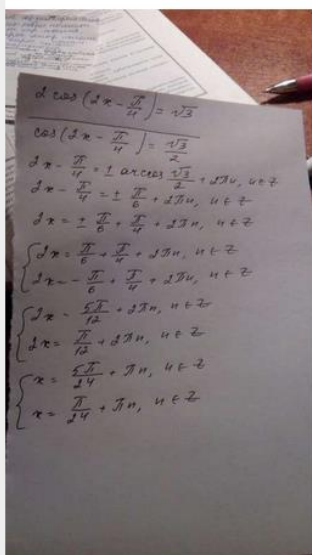 2 cos(2x - π/4) = √3
cos(2x - π/4) = √3/2
2x - π/4 = ± arccos √3/2 + 2πn, n∈Z
2x - π/4 = ± π/6 + 2πn, n∈Z
2x = ± π/6 + π/4 + 2πn, n∈Z
2x = π/6 + π/4 + 2πn, n∈Z
2x = - π/6 + π/4 + 2πn, n∈Z
2x = 5π/12 + 2πn, n∈Z
2x = π/12 + 2πn, n∈Z
x = 5π/24 + πn, n∈Z
x = π/24 + πn, n∈Z